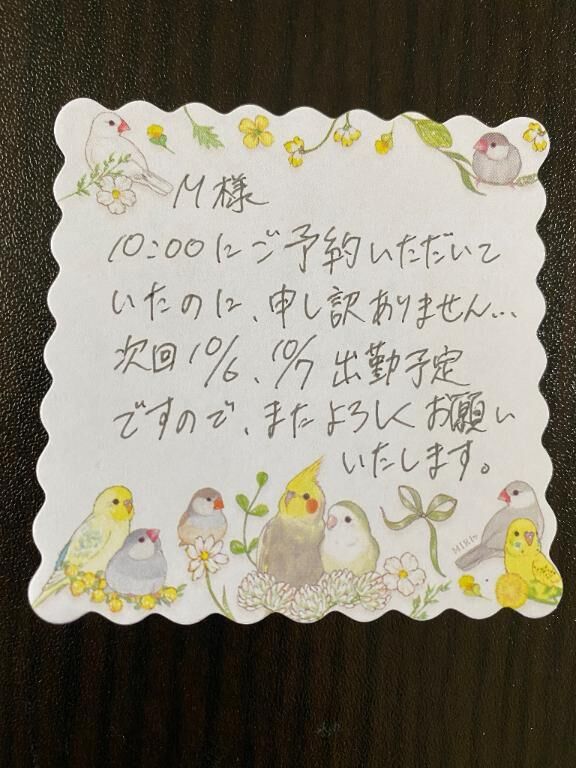 M様
10:00にご予約いただいて
いたのに、申し訳ありません...
次回10/6、10/7 出勤予定
ですので、またよろしくお願い
いたします。
MIRI